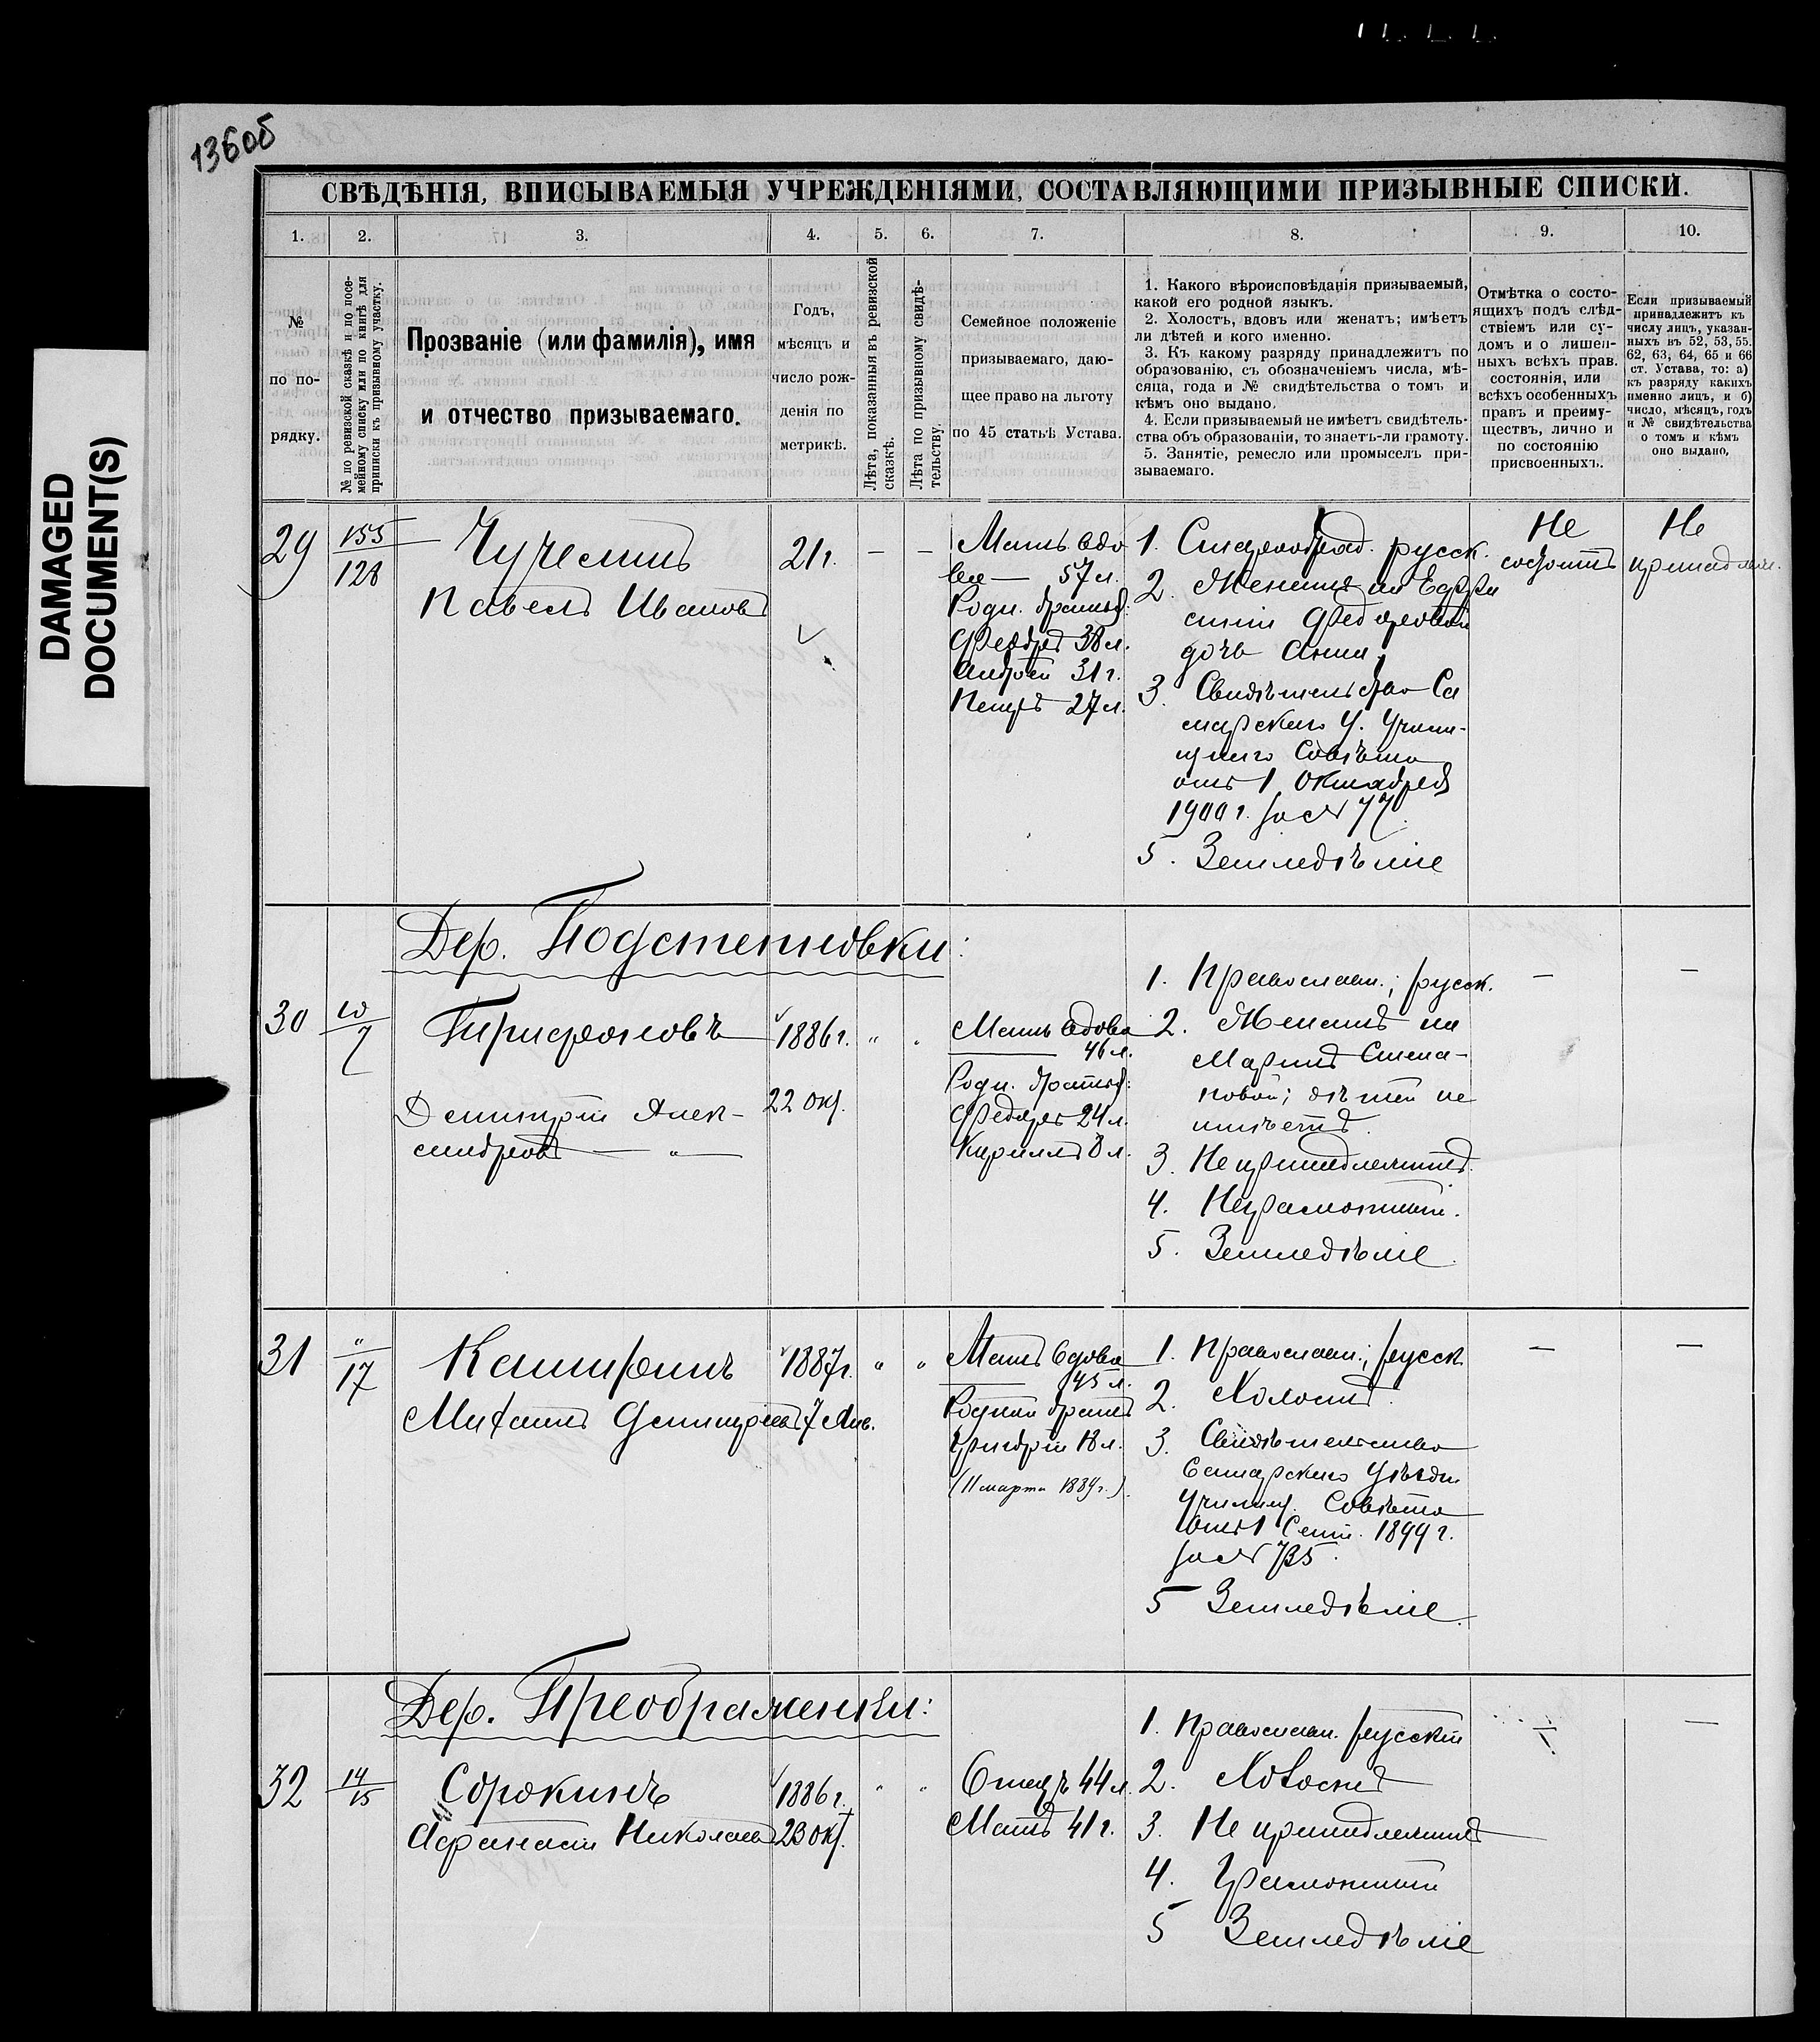 136об
DAMAGED
DOCUMENT(S)
СВѢДѢНІЯ, ВПИСЫВАЕМЫЯ УЧРЕЖДЕНІЯМИ, СОСТАВЛЯЮЩИМИ ПРИЗЫВНЫЕ СПИСКИ.
1. 2. 3. 4. 5. 6. 7. 8. 9. 10.
№
по по-
рядку.
№ по ревизской сказкѣ и по посе-
мейному списку или по книгѣ для
приписки къ призывному участку.
Прозваніе (или фамилія), имя
и отчество призываемаго.
Годъ,
мѣсяцъ и
число рож-
денія по
метрикѣ.
Лѣта, показанныя въ ревизской
сказкѣ.
Лѣта по призывному свидѣ-
тельству.
Семейное положеніе
призываемаго, даю-
щее право на льготу
по 45 статьѣ Устава.
1. Какого вѣроисповѣданія призываемый,
какой его родной языкъ.
2. Холостъ, вдовъ или женатъ; имѣетъ
ли дѣтей и кого именно.
3. Къ какому разряду принадлежитъ по
образованію, съ обозначеніемъ числа, мѣ-
сяца, года и № свидѣтельства о томъ и
кѣмъ оно выдано.
4. Если призываемый не имѣетъ свидѣтель-
ства объ образованіи, то знаетъ-ли грамоту.
5. Занятіе, ремесло или промыселъ при-
зываемаго.
Отмѣтка о состо-
ящихъ подъ слѣд-
ствіемъ или су-
домъ и о лишен-
ныхъ всѣхъ прав.
состоянія, или
всѣхъ особенныхъ
правъ и преиму-
ществъ, лично и
по состоянію
присвоенныхъ.
Если призываемый
принадлежитъ къ
числу лицъ, указан-
ныхъ въ 52, 53, 55.
62, 63, 64, 65 и 66
ст. Устава, то: а)
къ разряду какихъ
именно лицъ, и б)
число, мѣсяцъ, годъ
и № свидѣтельства
о томъ и кѣмъ
оно выдано.
29
155
128
Павелъ Ивановъ
21 г.
— —
Мать вдо
ва — 57 л.
Родн. братья:
Федоръ 38 л.
Андрей 31 г.
Петръ 27 л.
1. Старообряд. русск.
2. Женатъ на
Федоровой
дочь Анна;
3. Свидѣтельство Са
марскаго У. Учили-
щнаго Совѣта
отъ 1 Октября
1900 г. за № 77.
5. Земледѣліе
Не
состоитъ
Не
принадлеж.
Дер. Подстепновки:
30
10
7
Трифоновъ
Дмитрій Алек-
сандровъ — " —
1886 г.
22 Окт.
" "
Мать вдова
46 л.
Родн. братья:
Федоръ 24 л.
Кириллъ 8 л.
1. Православн.; русск.
2. Женатъ на
Маріи Степа-
новой; дѣтей не
имѣетъ.
3. Не принадлежитъ.
4. Неграмотный.
5. Земледѣліе.
— —
31
"
17
Каширинъ
Михаилъ Дмитріевъ
1887 г.
7 Янв.
" "
Мать вдова
45 л.
Родной братъ
Григорій 18 л.
(11 марта 1889 г.).
1. Православн.; русск.
2. Холостъ.
3. Свидѣтельство
Самарскаго Уѣздн
Училищ. Совѣта
отъ 1 Сент. 1899 г.
за № 735.
5 Земледѣліе.
— —
Дер. Преображенки:
32
14
15
Сорокинъ
Афанасій Николаевъ
1886 г.
23 Окт.
" "
Отецъ 44 л.
Мать 41 г.
1. Православн. русскій
2. Холостъ
3. Не принадлежитъ
4. Грамотный
5 Земледѣліе
— —